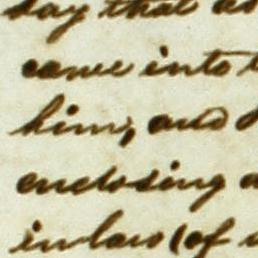 say that as
came into
him, and
enclosing
in law (of